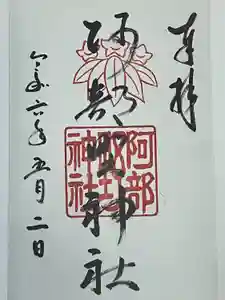 奉拝
阿部野神社
阿部野神社
令和六年五月二日